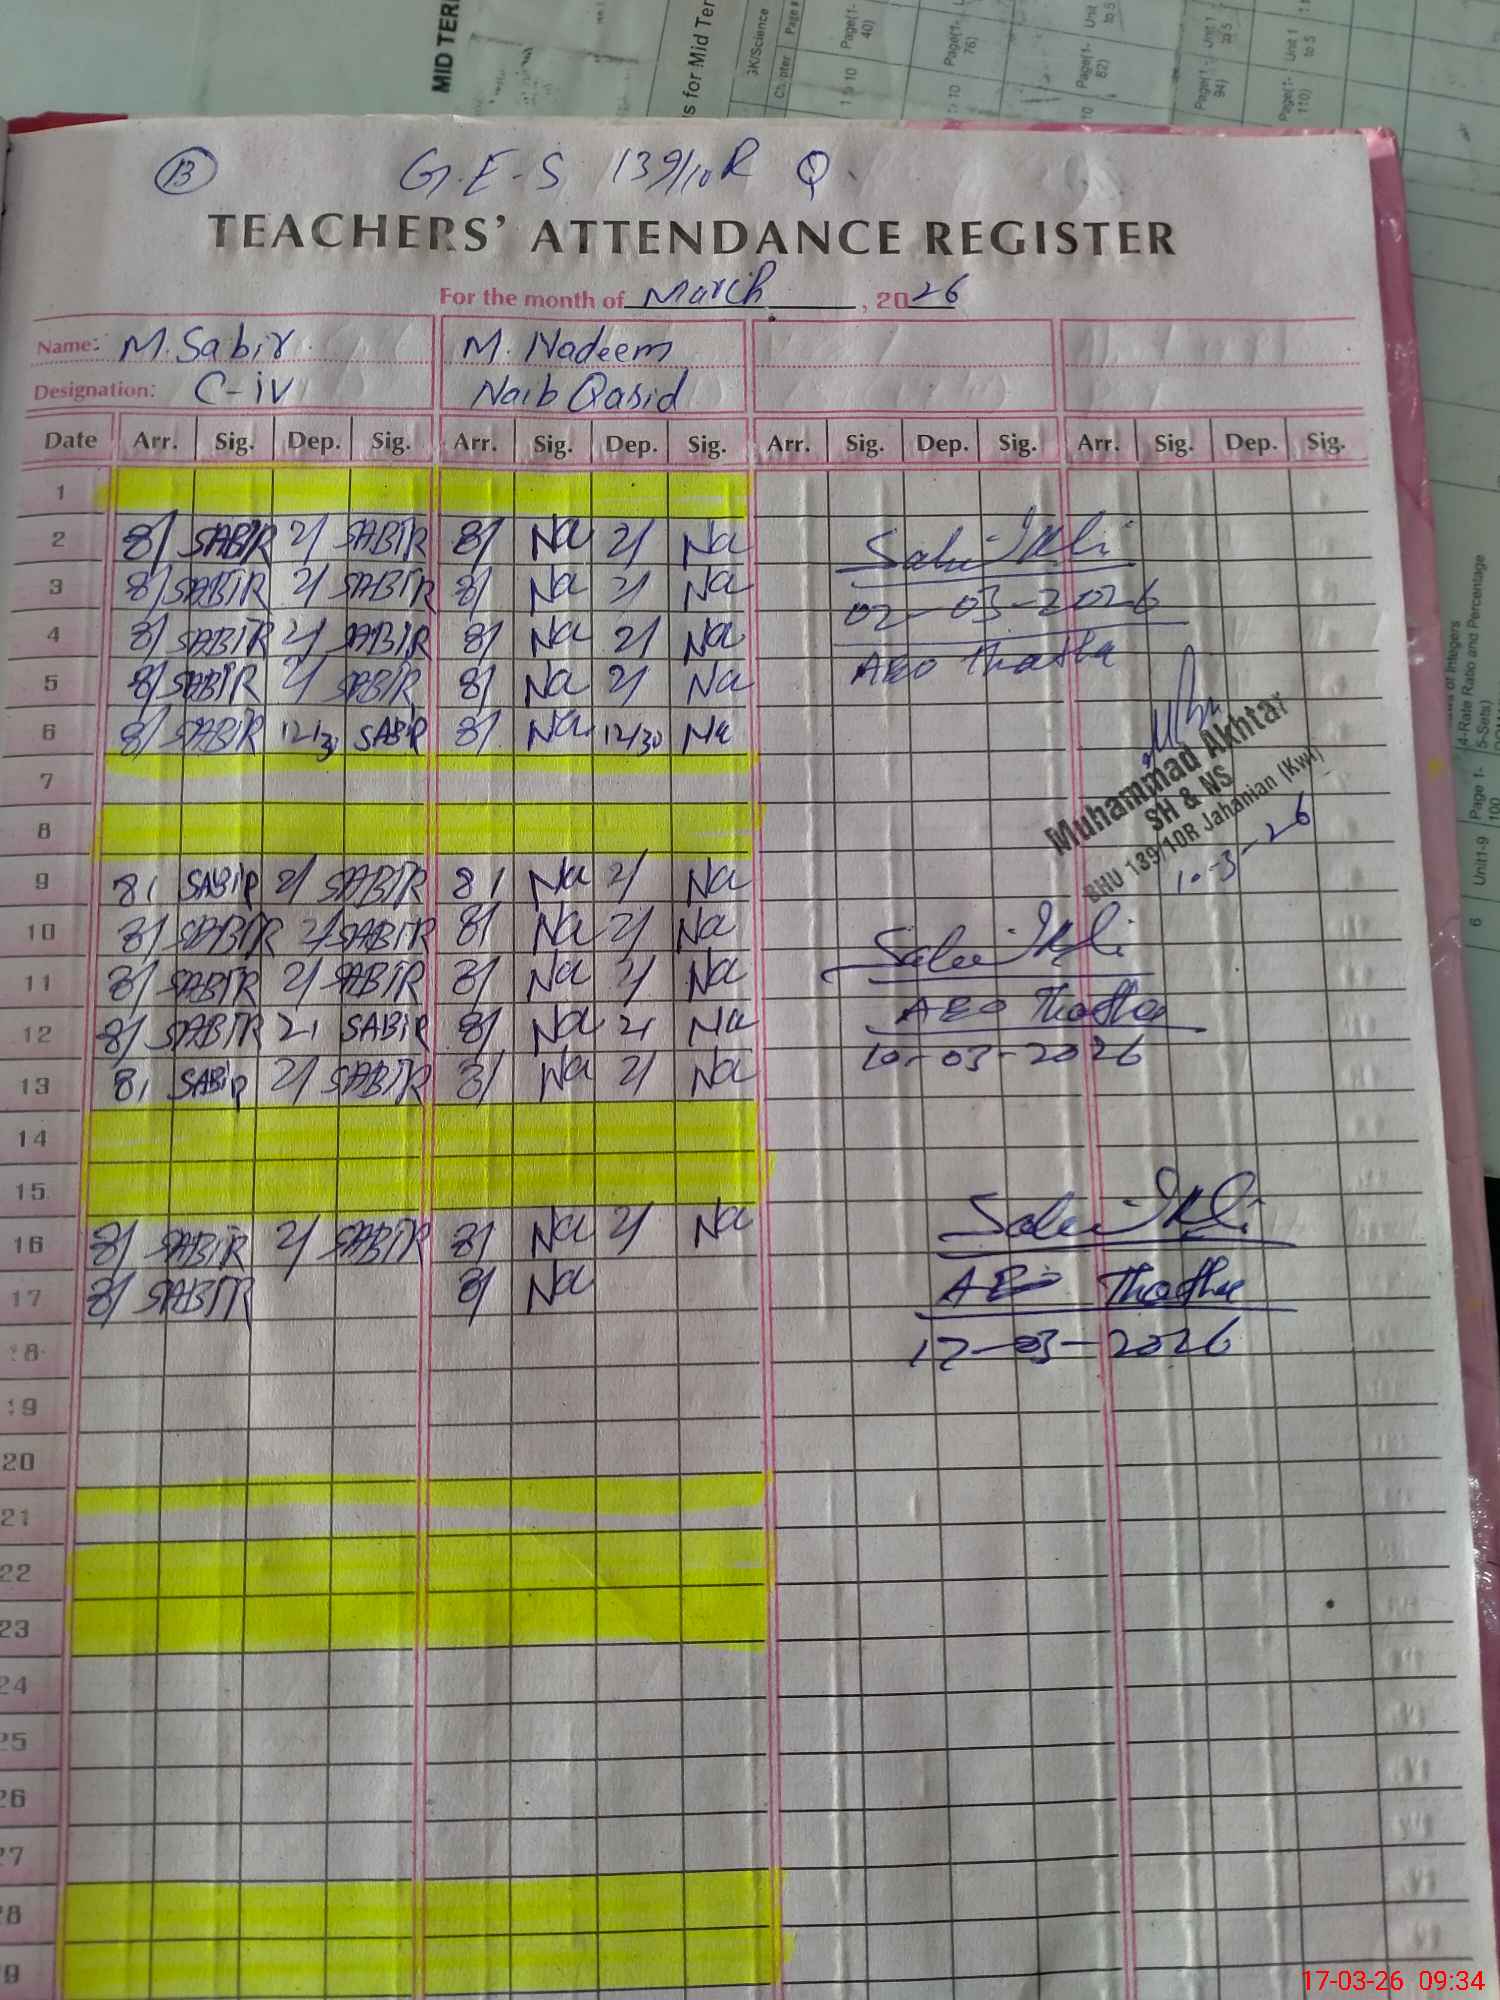 MID TER
s for Mid Ter
3K/Science
Chapter Page #
1 to 10 Page(1-40)
Page(1-76)
Page(1-82)
Unit to 5
Page(1-94)
Unit 1 to 5
Page(1-110)
Unit 1 to 5
13 G.E.S 139/10R Q.
TEACHERS' ATTENDANCE REGISTER
For the month of March, 2026
Name: M. Sabir M. Nadeem
Designation: C-iv Naib Qasid
Date Arr. Sig. Dep. Sig. Arr. Sig. Dep. Sig. Arr. Sig. Dep. Sig. Arr. Sig. Dep. Sig.
1
2 8/ SABIR 2/ SABIR 8/ Na 2/ Na
3 8/ SABIR 2/ SABIR 8/ Na 2/ Na
02-03-2026
4 8/ SABIR 2/ SABIR 8/ Na 2/ Na
AEO Thatta
5 8/ SABIR 2/ SABIR 8/ Na 2/ Na
6 8/ SABIR 12/30 SABIR 8/ Na 12/30 Na
7
8
Muhammad Akhtar
SH & NS
BHU 139/10R Jahanian (Kwl)
10-3-26
9 8/ SABIR 2/ SABIR 8/ Na 2/ Na
10 8/ SABIR 2/ SABIR 8/ Na 2/ Na
11 8/ SABIR 2/ SABIR 8/ Na 2/ Na
AEO Thatta
12 8/ SABIR 2/ SABIR 8/ Na 2/ Na
10-03-2026
13 8/ SABIR 2/ SABIR 8/ Na 2/ Na
14
15
16 8/ SABIR 2/ SABIR 8/ Na 2/ Na
17 8/ SABIR 8/ Na
AEO Thatta
18
17-03-2026
19
20
21
22
23
24
25
26
27
28
29
4-Rate Ratio and Percentage
5-Sets)
6 Unit1-9 Page 1-100
17-03-26 09:34